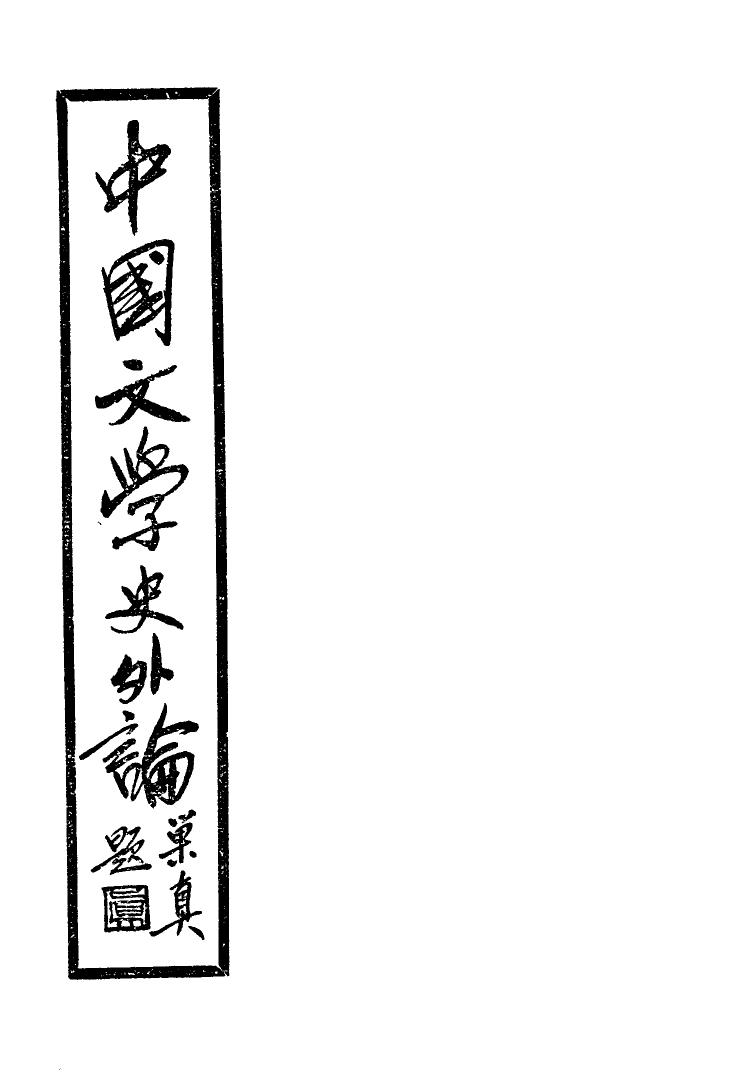 中國文學史外論
巢真
題